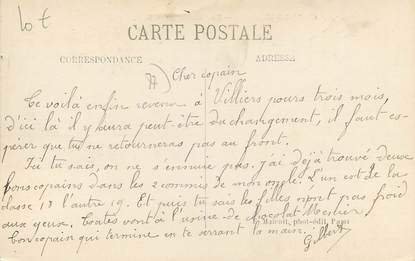 10 €
CARTE POSTALE
CORRESPONDANCE ADRESSE
77) Cher copain
Te voilà enfin revenu à Villiers pours trois mois,
d'ici là il y aura peut-être du changement, il faut es-
pérer que tu ne retourneras pas au front.
Ici tu sais, on ne s'ennuie pas. j'ai déjà trouvé deux
bons copains dans les 2 commis de mon oncle. L'un est de la
classe 18 l'autre 19. Et puis tu sais les filles n'ont pas froid
aux yeux. Toutes vont à l'usine de chocolat Menier
Ton copain qui termine en te serrant la main.
phot-édit, Paris
Gilbert